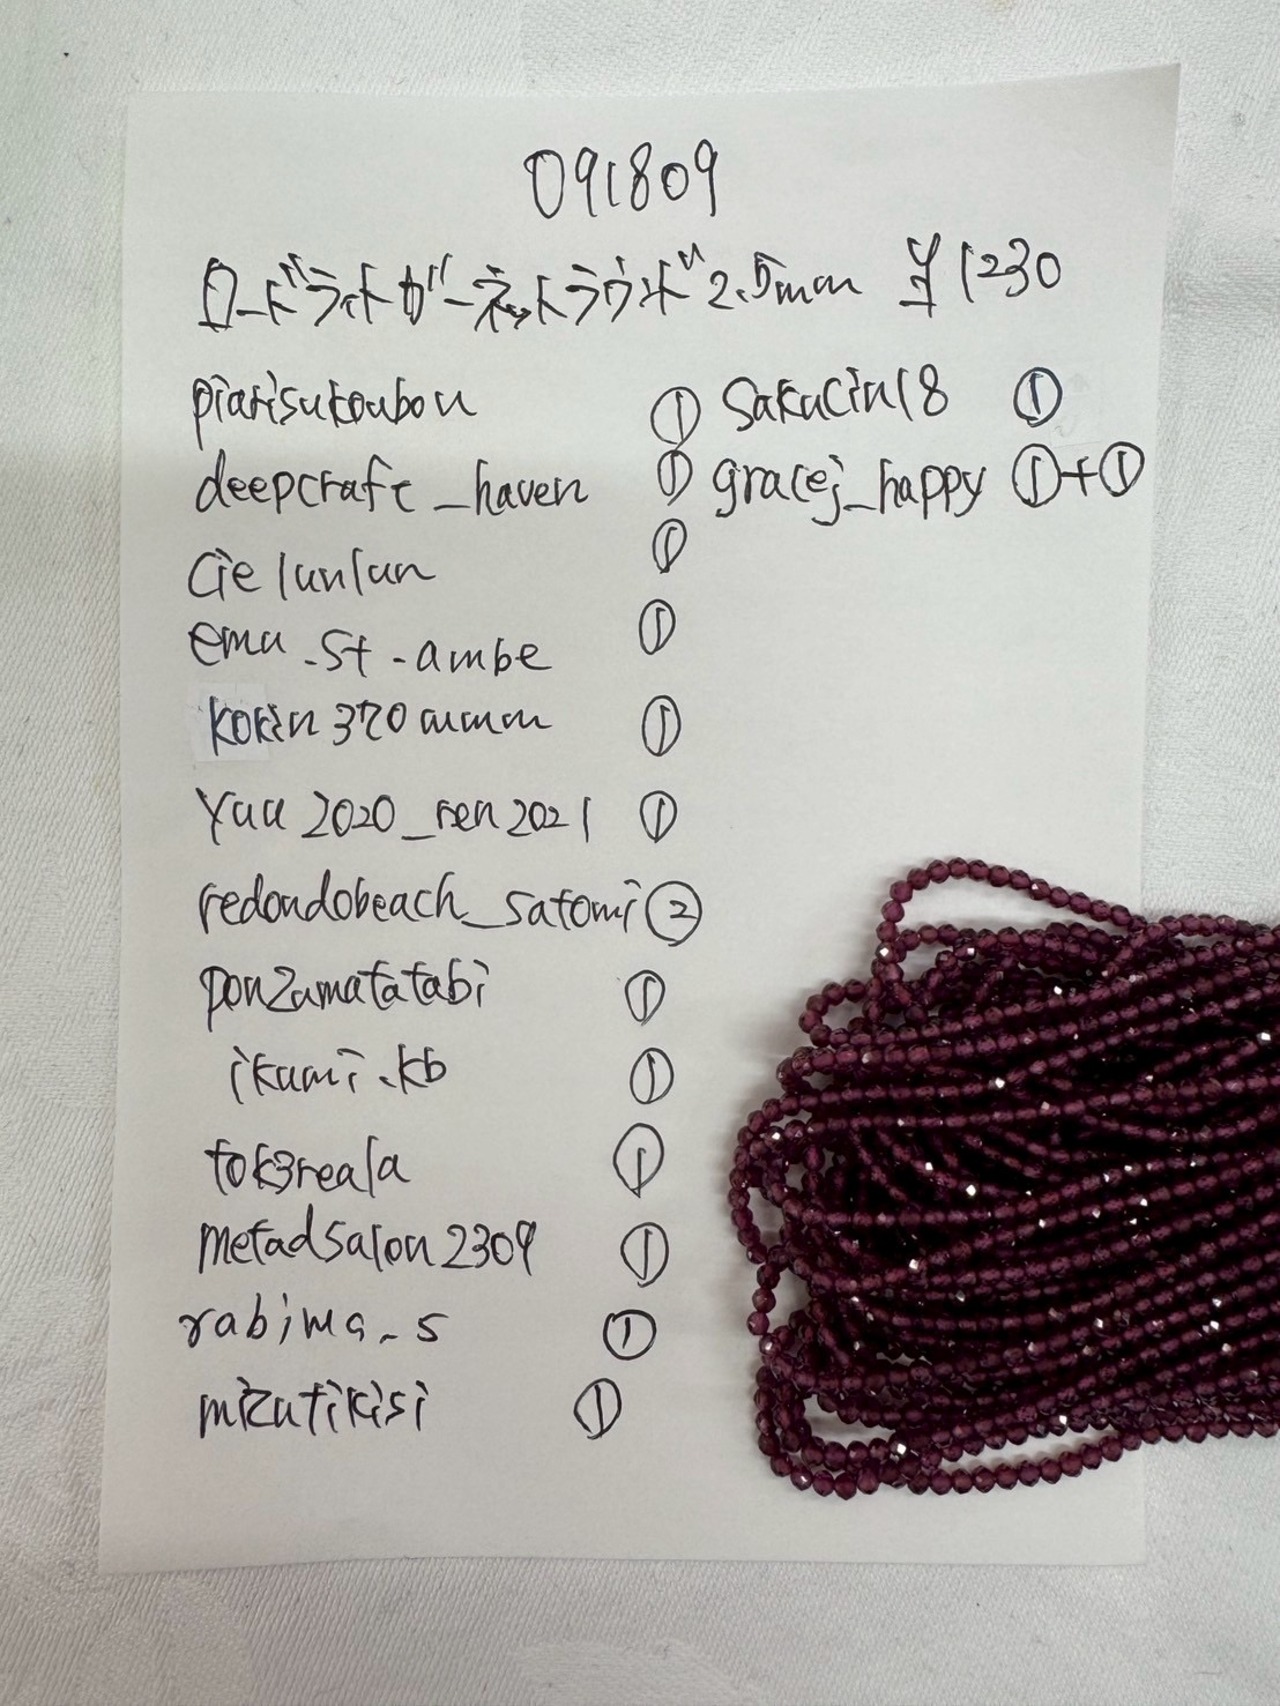 091809
ロードライトガーネットラウンド2.5mm ¥1230
piarisukoubou ① sakucin18 ①
deepcraft_haven ① gracej_happy ①+①
cielunlun ①
emu_st_ambe ①
kokin370mmm ①
yuu2020_ren2021 ①
redondobeach_satomi ②
ponzumatatabi ①
ikumi.kb ①
tok3reala ①
metadsalon2309 ①
rabima_s ①
mizutikisi ①